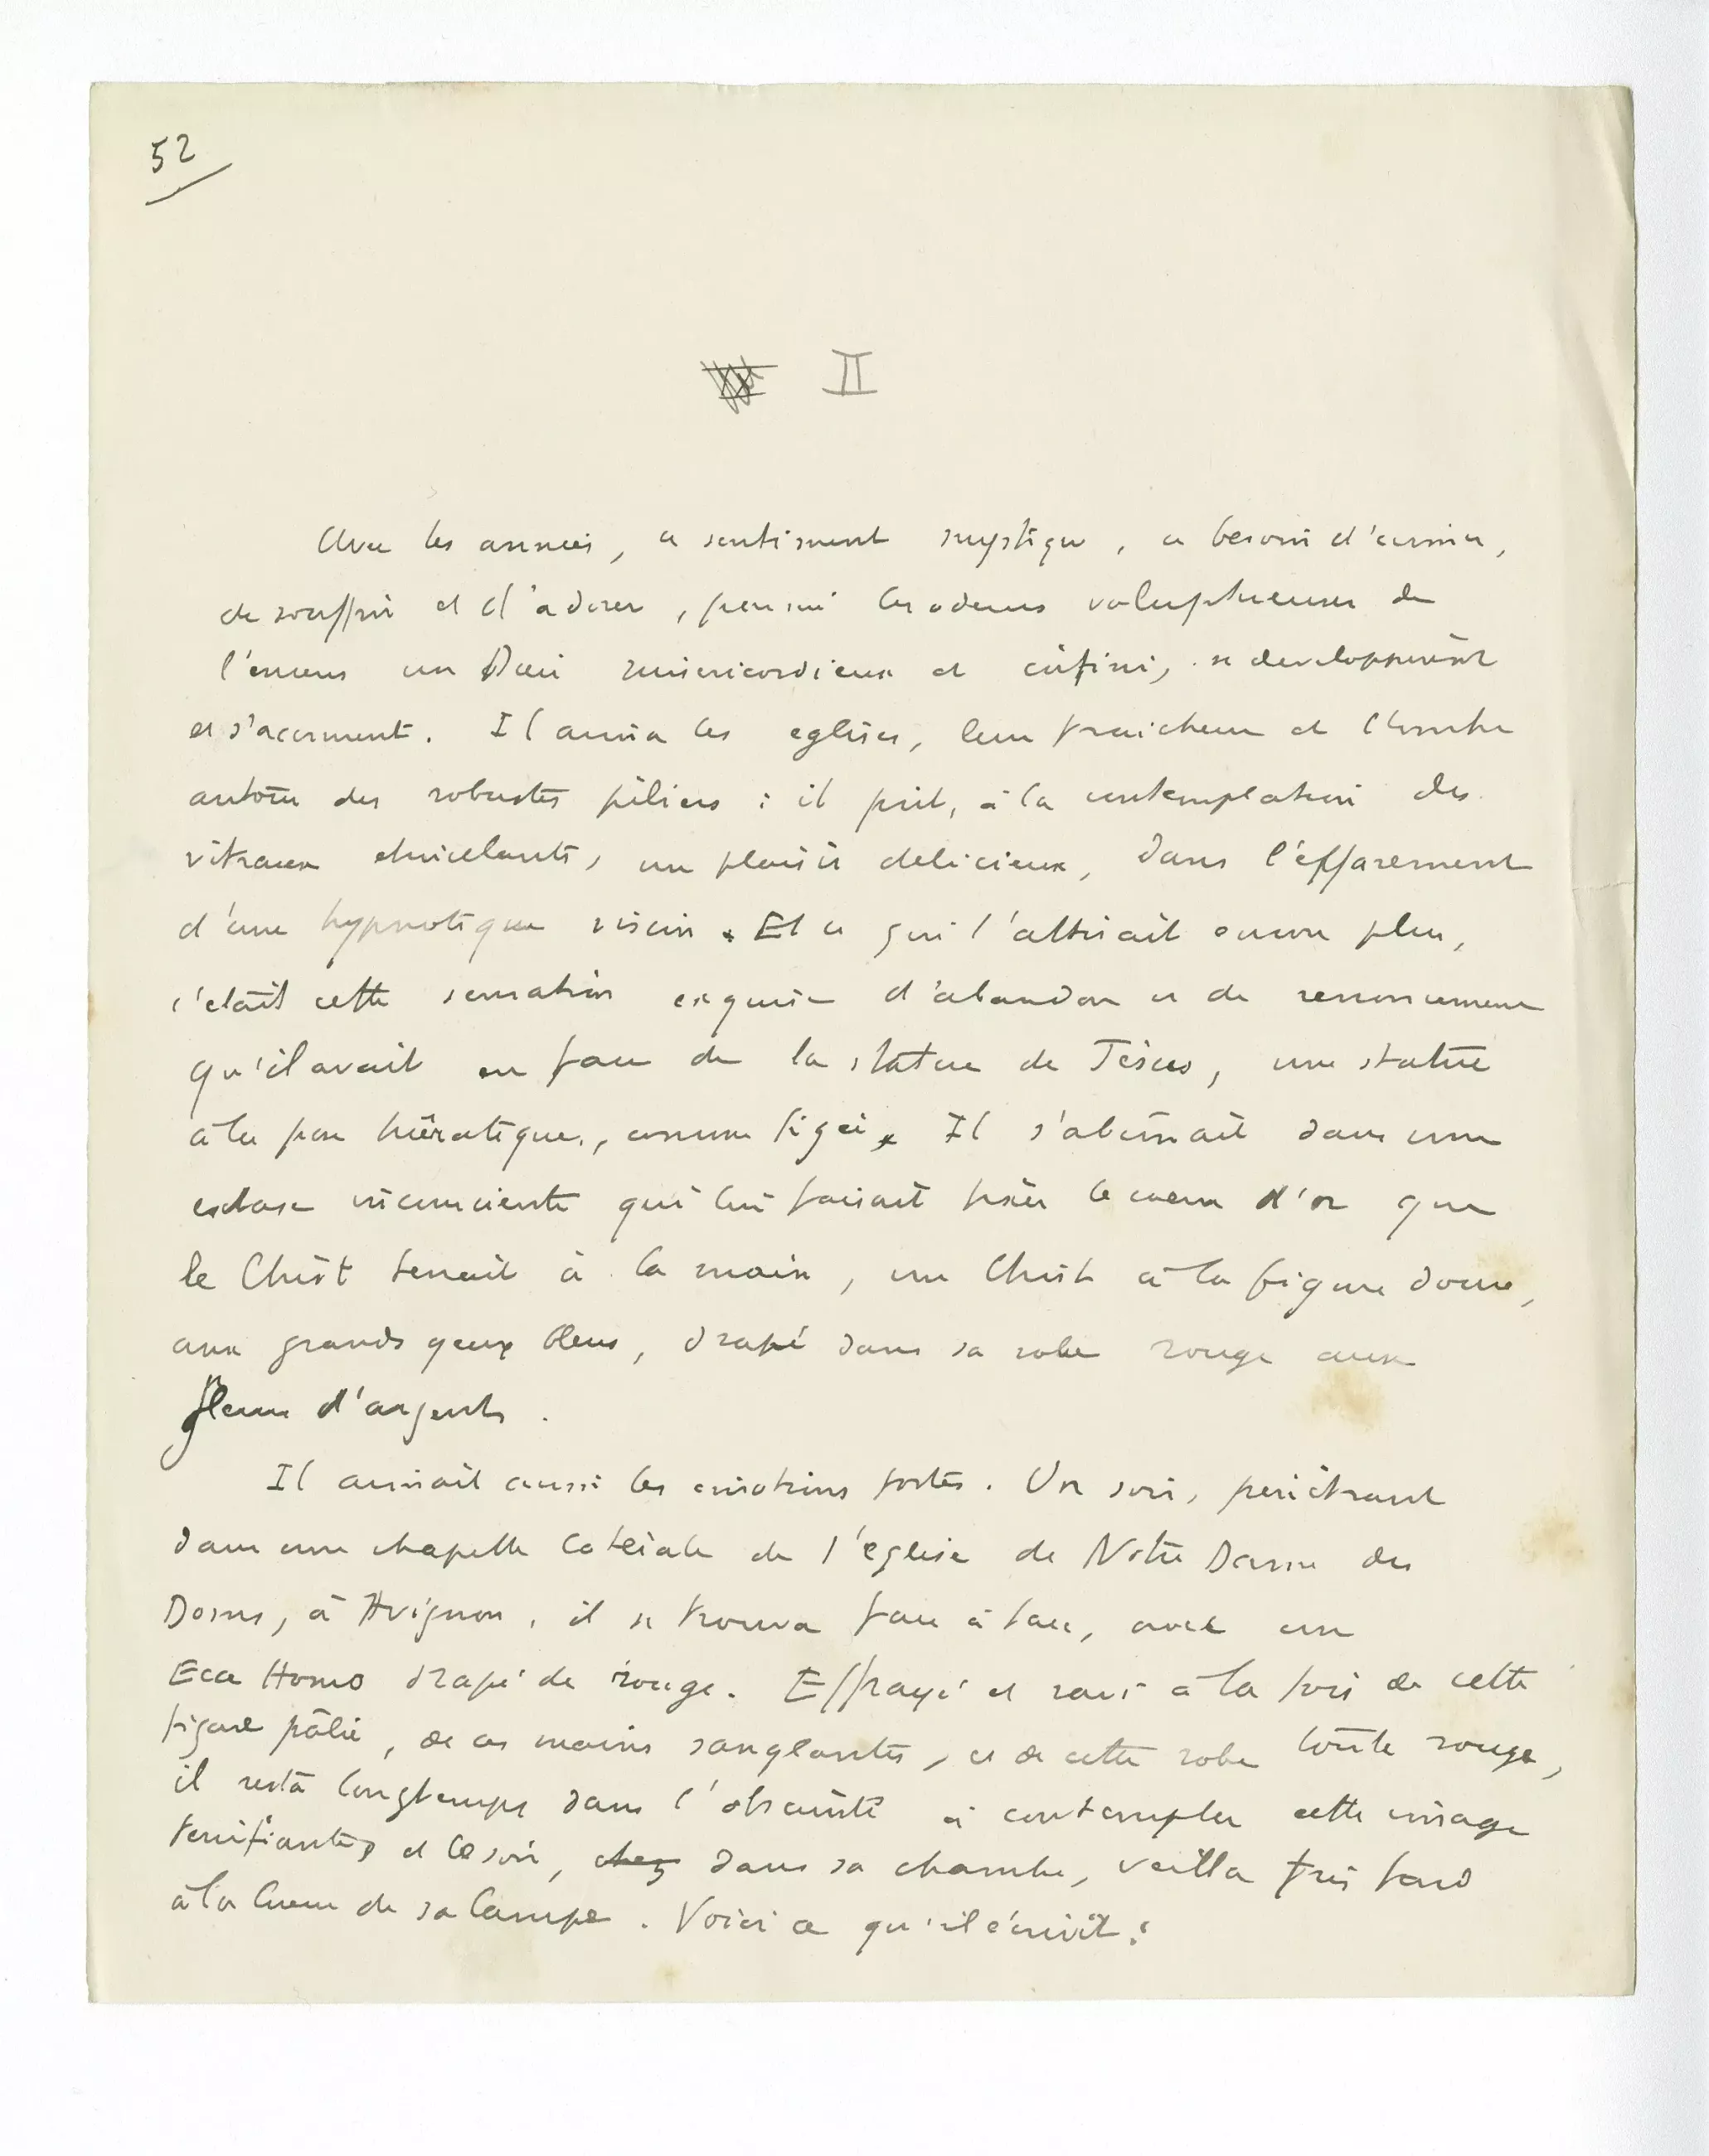 52
II
Avec les années, ce sentiment mystique, ce besoin d'aimer,
de souffrir et d'adorer, parmi les odeurs voluptueuses de
l'encens un Dieu misericordieux et infini, se developpèrent
et s'accrurent. Il aima les eglises, leur fraicheur et l'ombre
autour des robustes piliers : il prit, à la contemplation des
vitraux etincelants, un plaisir delicieux, dans l'effarement
d'une hypnotique vision. Et ce qui l'attirait encore plus,
c'était cette sensation exquise d'abandon et de renoncement
qu'il avait en face de la statue de Jésus, une statue
à la pose hiératique, comme figée. Il s'abimait dans une
extase inconsciente qui lui faisait fixer le coeur d'or que
le Christ tenait à la main, un Christ à la figure douce,
aux grands yeux bleus, drapé dans sa robe rouge aux
fleurs d'argents.
Il aimait aussi les emotions fortes. Un soir, pénétrant
dans une chapelle latérale de l'église de Notre Dame des
Doms, à Avignon, il se trouva face à face, avec un
Ecce Homo drapé de rouge. Effrayé et ravi à la fois de cette
figure pâlie, de ces mains sanglantes, et de cette robe toute rouge,
il resta longtemps dans l'obscurité à contempler cette image
terrifiante, et le soir, chez dans sa chambre, veilla très tard
à la lueur de sa lampe. Voici ce qu'il écrivit :